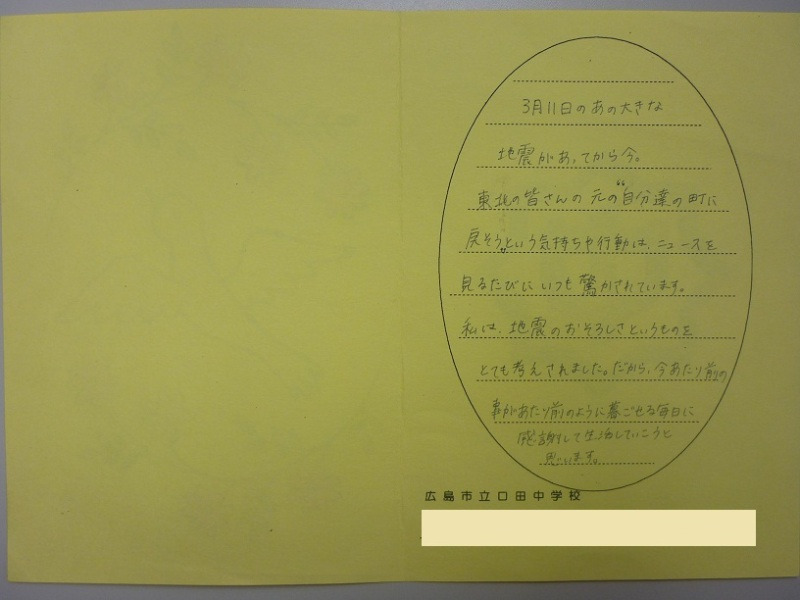 3月11日のあの大きな
地震があってから今。
東北の皆さんの 元の“自分達の町に
戻そう„という気持ちや行動は、ニュースを
見るたびに いつも 驚かされています。
私は、地震のおそろしさというものを
とても考えされました。だから、今あたり前の
事があたり前のように暮ごせる毎日に
感謝して生活していこうと
思います。
広島市立口田中学校